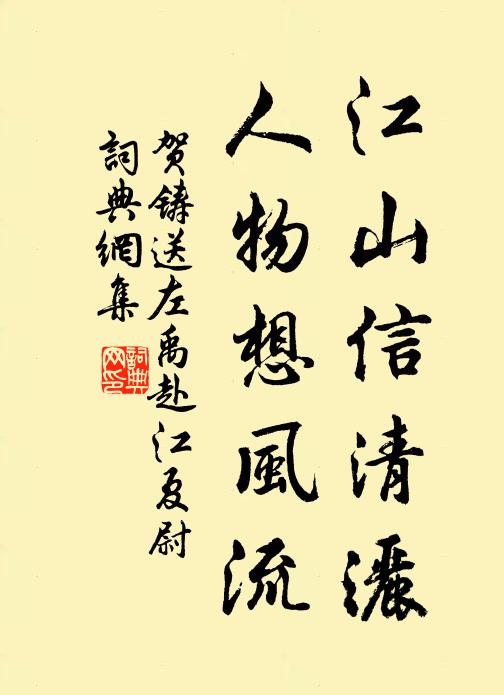 江山信清灑
人物想風流
贺鑄送左禹赴江夏尉
詞典網集
詞典网印